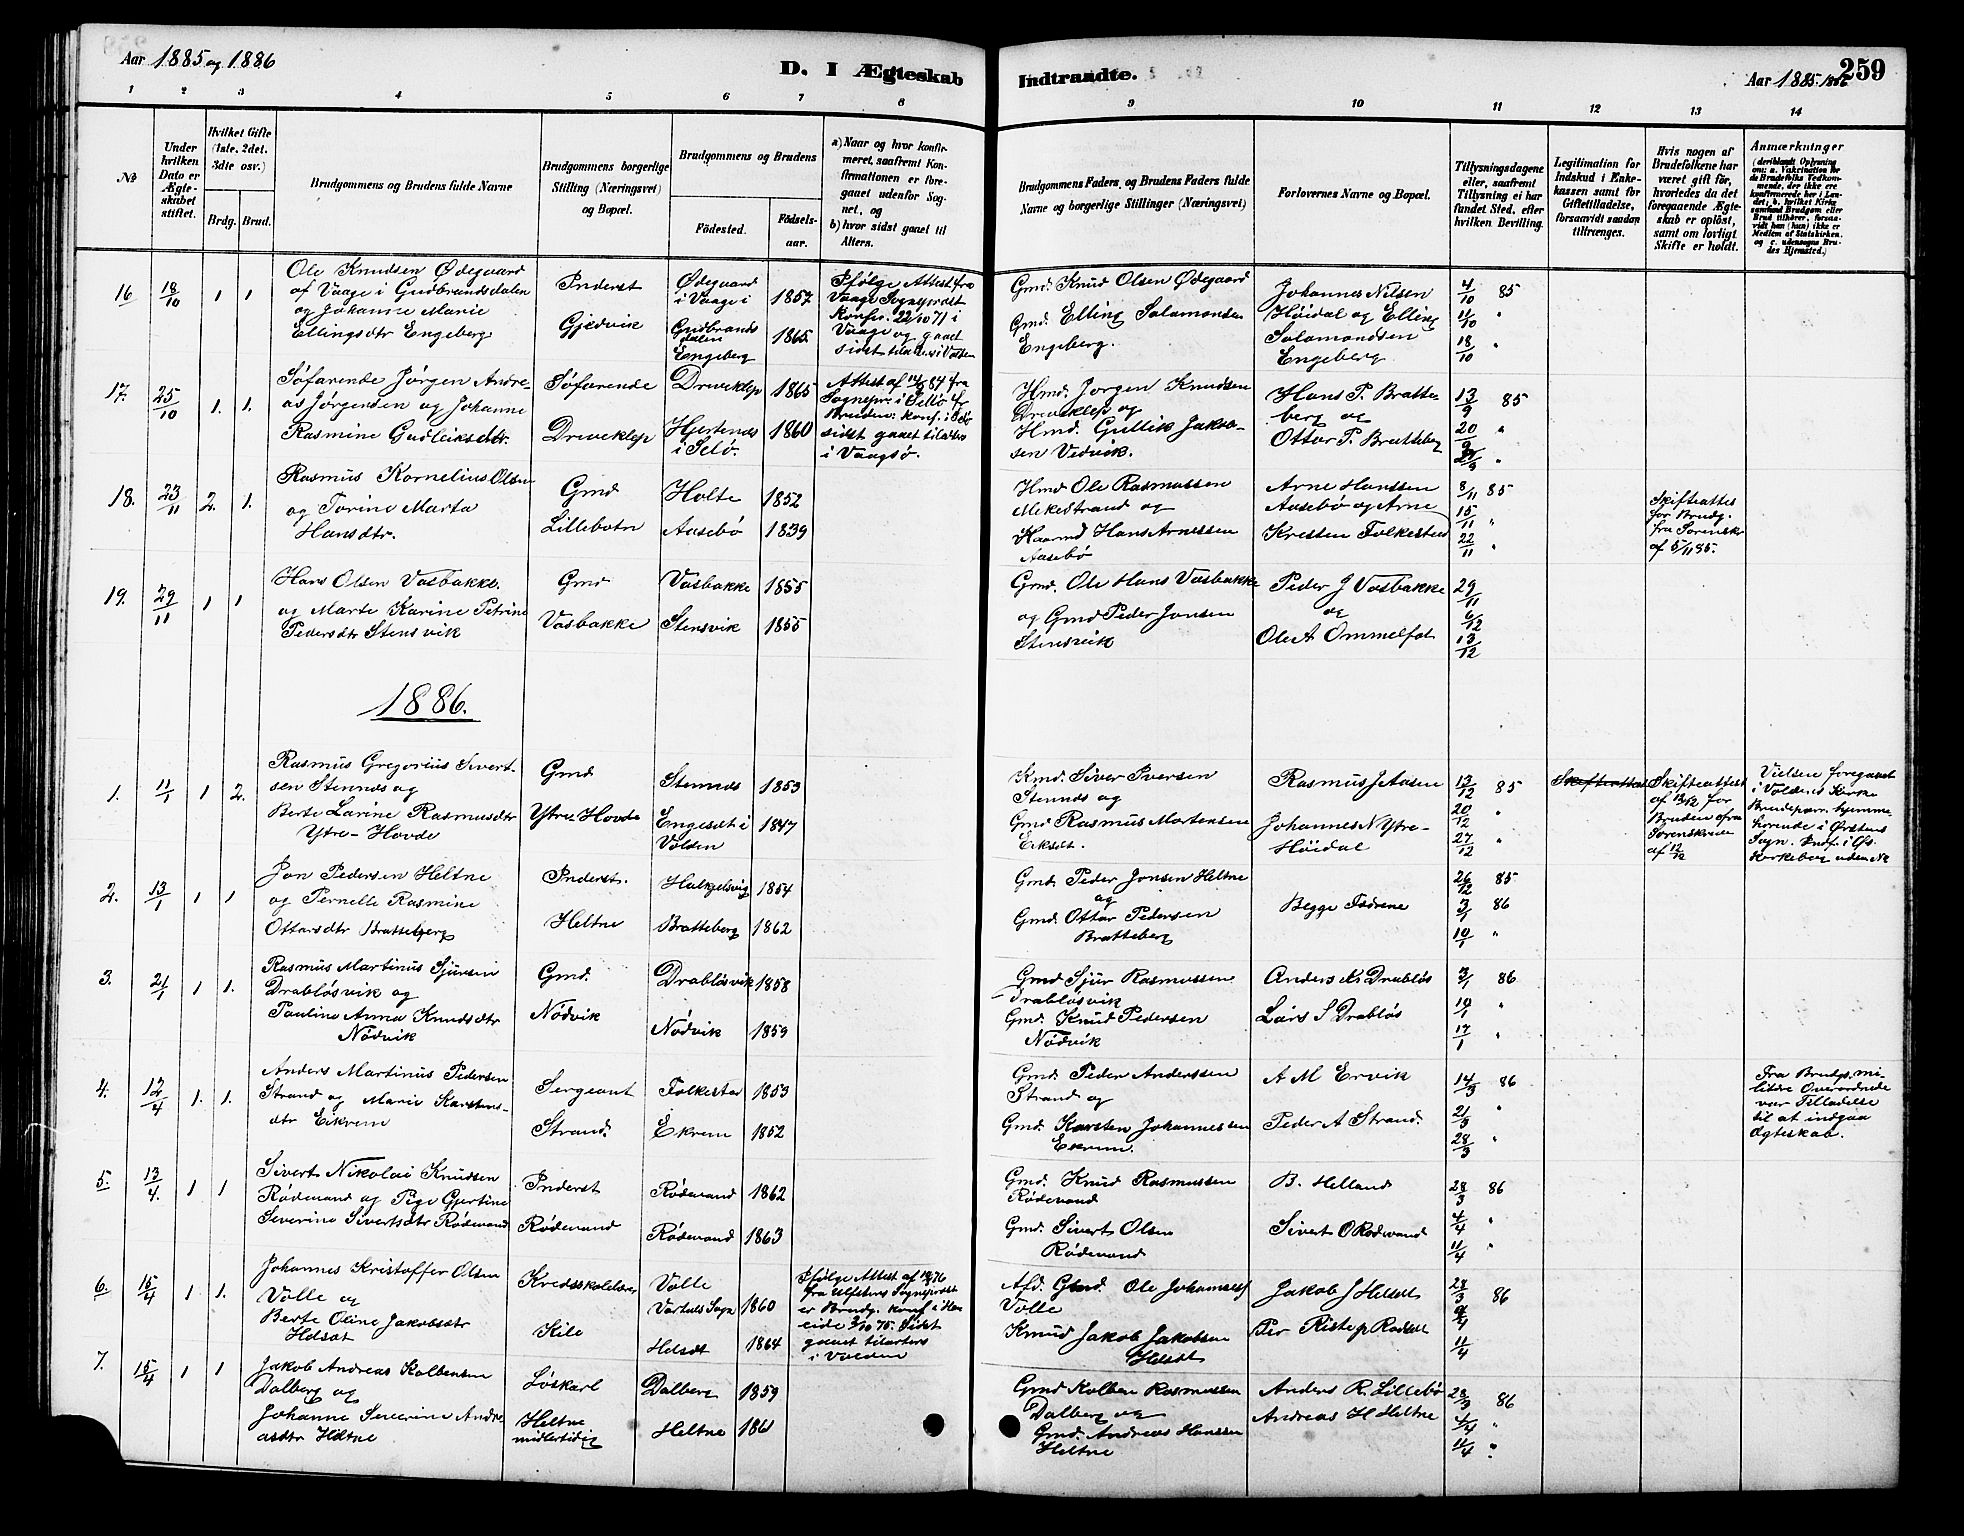 Aar 1885 og 1886
D. I Ægteskab
Indtraadte.
Aar 1885. 1886
259
1 2 3 4 5 6 7 8
9 10 11 12 13 14
No
Under hvilken Dato er Ægteskabet stiftet.
Hvilket Gifte (1ste, 2det, 3die osv.)
Brdg. Brud.
Brudgommens og Brudens fulde Navne
Brudgommens borgerlige Stilling (Næringsvei) og Bopæl.
Brudgommens og Brudens
Fødested.
Fødselsaar.
a) Naar og hvor konfirmeret, saafremt Konfirmationen er foregaaet udenfor Sognet, og
b) hvor sidst gaaet til Alters.
Brudgommens Faders, og Brudens Faders fulde Navne og borgerlige Stillinger (Næringsvei)
Forlovernes Navne og Bopæl.
Tillysningsdagene eller, saafremt Tillysning ei har fundet Sted, efter hvilken Bevilling.
Legitimation for Indskud i Enkekassen samt for Giftetilladelse, forsaavidt saadan tiltrænges.
Hvis nogen af Brudefolkene har været gift før, hvorledes da det foregaaende Ægteskab er opløst, samt om lovligt Skifte er holdt.
Anmærkninger
16 18/10 1 1
Ole Knudsen Ødegaard
af Vaage i Gudbrandsdalen
og Johanne Marie
Ellingsdtr Engeberg
Inderst
Gjedvik
Ødegaard
i Vaage i
Gudbrands
dalen
Engeberg
1857
1865
Ifølge Attest fra
Vaage Sogneprest
Konfir. 22/10 71 i
Vaage og gaaet
Gmd. Knud Olsen Ødegaard
Gmd. Elling Salamonsen
Engeberg.
Johannes Nilsen
Høidal og Elling
Salamondsen
Engeberg
4/10 85
11/10 "
18/10 "
17. 25/10 1. 1.
Søfarende Jørgen Andre-
as Jørgensen og Johanne
Rasmine Gudleiksdtr.
Søfarende
Driveklep
Driveklep
Hertenes
i Selø.
1865
1860
sidst gaaet tilalters
i Vaagsø.
Hmd. Jørgen Knudsen
Driveklep og
Hmd. Gullik Jakob-
sen Vedvik.
Hans P. Bratte-
berg og
Ottar P. Bratteberg
13/9 85
20/9 "
27/9 "
18. 23/11 2. 1.
Rasmus Kornelius Olsen
og Torine Marta
Hansdtr.
Gmd
Lillebotn
Holte
Aasebø
1852
1839
Hmd Ole Rasmussen
Mekestrand og
Kaarmd Hans Arnessen
Aasebø
Arne Hanssen
Aasebø og Arne
Kresten Folkestad
8/11 85
15/11 "
22/11 "
Skifteattest
for Brudg.
fra Sorenskr
af 5/11 85.
19. 29/11 1 1
Hans Olsen Vasbakke
og Marte Karine Petrine
Pedersdtr Stensvik
Gmd
Vasbakke
Vasbakke
Stensvik
1855
1855
Gmd. Ole Hans Vasbakke
og Gmd Peder Jonsen
Stensvik
Peder J Vasbakke
og
Ole A Ommelfot
29/11
6/12
13/12
1886.
1. 11/1 1 2.
Rasmus Gregorius Sivert-
sen Stennes og
Berte Larine Rasmusdtr
Ytre-Hovde
Gmd
Ytre Hovde
Stennes
Engesæt i
Volden
1853
1847
Kmd. Siver Iversen
Stennes og
Gmd Rasmus Martensen
Eksæt.
Rasmus J Aasen
Johannes N Ytre-
Høidal
13/12 85
20/12 "
27/12 "
Skifteattest
Skifteattest
for
Bruden fra
Sorenskriver
af 12/12
Vielsen foregaaet
i Voldens Kirke
Brudeparr. hjemme-
hørende i Ørstens
Sogn. Indf. i Øs.
Kirkebog uden No
2. 13/1 1 1
Jon Pedersen Heltne
og Pernelle Rasmine
Ottarsdtr Bratteberg
Inderst.
Heltne
Halkjelsvig
Bratteberg
1854
1862
Gmd. Peder Jonsen Heltne
og
Gmd. Ottar Pedersen
Bratteberg
Begge Fædrene
26/12 85
3/1 86
10/1 "
3. 21/1 1 1.
Rasmus Martinus Sjursen
Drabløsvik og
Pauline Anna Knudsdtr
Nødvik
Gmd.
Nødvik
Drabløsvik
Nødvik
1858
1859
Gmd Sjur Rasmussen
Drabløsvik
Gmd. Knud Pedersen
Nødvik
Anders K. Drabløs
Lars S Drabløs
3/1 86
10/1 "
17/1 "
4. 12/4 1. 1.
Anders Martinus Pedersen
Strand og Marie Karstens-
dtr Eikrem
Sergeant
Strand.
Folkestad
Ekrem
1853
1852
Gmd. Peder Anderssen
Strand og
Gmd. Karsten Johannessen
Ekrem.
A M Ervik
Peder A Strand.
14/3 86
21/3 "
28/3 "
Fra Brudg. mi-
litære Overordnede
var Tilladelse
til at indgaa
Ægteskab.
5. 13/4. 1 1
Sivert Nikolai Knudsen
Rødevand og Pige Gjertine
Severine Sivertsdtr Rødevand
Inderst
Rødevand
Rødevand
Rødevand
1862
1863
Gmd. Knud Rasmussen
Rødevand
Gmd. Sivert Olsen
Rødevand
B. Helland
Sivert O Rødevand
28/3 86
4/4 "
11/4 "
6. 15/4 1 1.
Johannes Kristoffer Olsen
Volle og
Berte Oline Jakobsdtr
Helsæt
Kredsskolelærer
Kile
Volle
Vartals Sogn
Helsæt
1860
1864
fra Ulstens Sogneprest
er Brudg. konf. i Har
eide 3/10 75. Sidst
gaaet tilalters
i Volden
Afd. Gmd. Ole Johannes
Volle
Knud Jakob Jakobsen
Helsæt
Jakob J Helsæt
Per Riste p Rødset
28/3 86
4/4
11/4
7. 15/4 1 1
Jakob Andreas Kolbensen
Dalberg og
Johanne Severine Andre
asdtr Heltne
Løskarl
Heltne
midlertidig
Dalberg
Heltne
1859
1861
Gmd Kolben Rasmussen
Dalberg og
Gmd. Andreas Hanssen
Heltne
Anders R. Lillebø
Andreas H Heltne
28/3 86
4/4 "
11/4 "